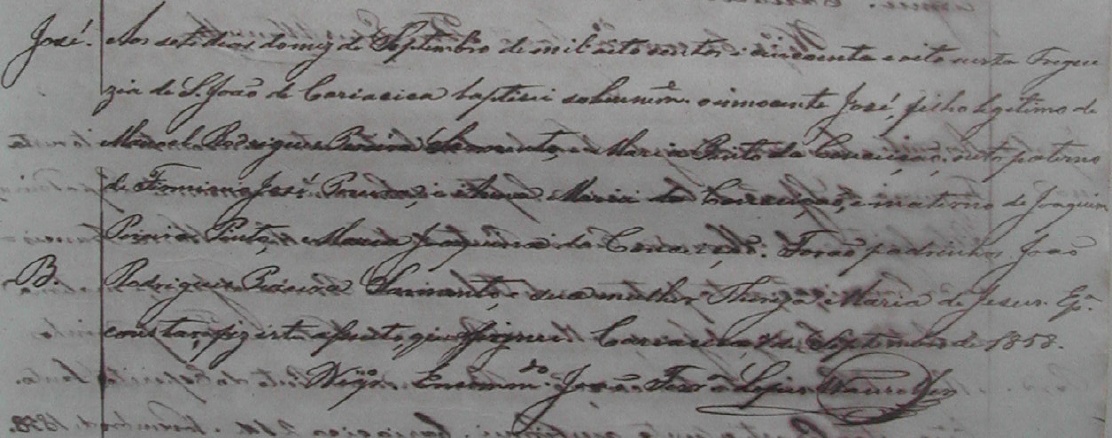 José. Aos sete dias do mez de Septembro de mil oito centos e cincoenta e oito nesta Fregue
zia de S. João de Cariacica baptisei solemnem.e o innocente José, filho legitimo de
Manoel Rodrigues Pereira Sarmento, e Maria Pinto da Conceição: neto paterno
de Firmiano José Pereira, e Anna Maria da Conceição, e materno de Joaquim
Pereira Pinto, e Maria Joaquina da Conceição: Forão padrinhos João
B. Rodrigues Pereira Sarmento, e sua mulher Thereza Maria de Jesus. E p.a
constar, fiz este assento, que assignei. Cariacica, 7 de Septembro de 1858.
Vigr.o Encomm.do João Lopes